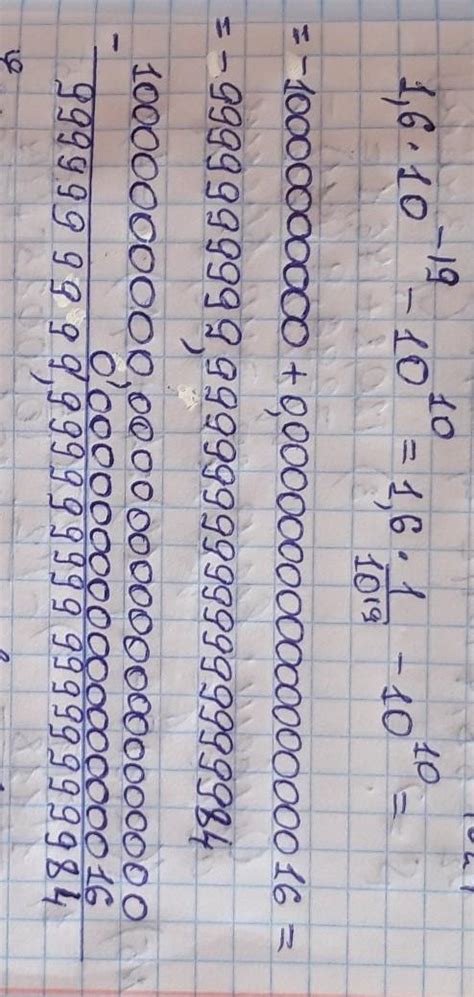 1,6·10⁻¹⁹ - 10¹⁰ = 1,6 · 1/10¹⁹ - 10¹⁰ =
= -10000000000 + 0,00000000000000000016 =
= -9999999999,99999999999999999984
- 10000000000,00000000000000000000
0,00000000000000000016
9999999999,99999999999999999984